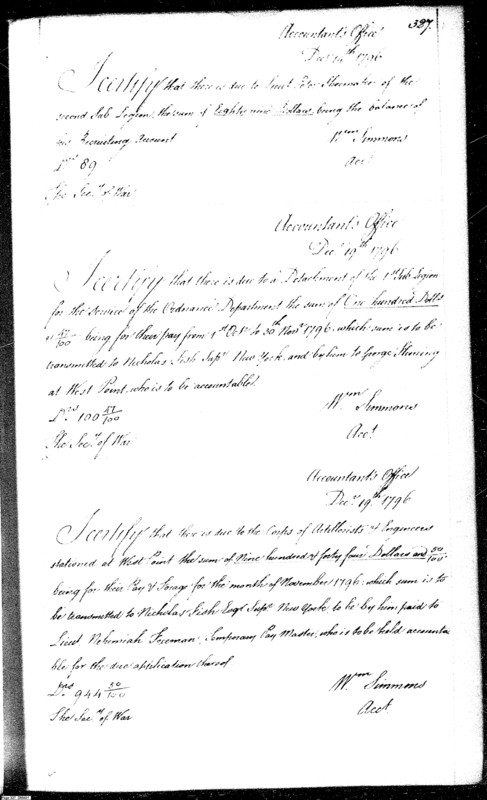 387.
Accountant's Office
Decr 19th 1796
I certify that there is due to Lieut Peter Shoemaker of the
second Sub Legion, the sum of Eighty nine Dollars, being the balance of
his Recruiting Account
Wm Simmons
Acct
Drs 89
The Secy of War
Accountant's Office
Decr 19th 1796
I certify that there is due to a Detachment of the 1st Sub Legion
for the service of the Ordnance Department the sum of One hundred Dolls
& 47/100 being for their pay from 1st Octr to 30th Novr 1796. which sum is to be
transmitted to Nicholas Fish Supr New York and by him to George Fleming
at West Point, who is to be accountable.
Wm Simmons
Acct
Drs 100 47/100
The Secy of War
Accountant's Office
Decr 19th 1796
I certify that there is due to the Corps of Artillerists & Engineers
stationed at West Point the sum of Nine hundred & forty four Dollars and 50/100
being for their Pay & Forage for the month of November 1796. which sum is to
be transmitted to Nicholas Fish Esqr Supr New York to be by him paid to
Lieut Nehemiah Freeman, Temporary Pay Master, who is to be held accounta
ble for the due application thereof
Wm Simmons
Acct
Drs 944 50/100
The Secy of War